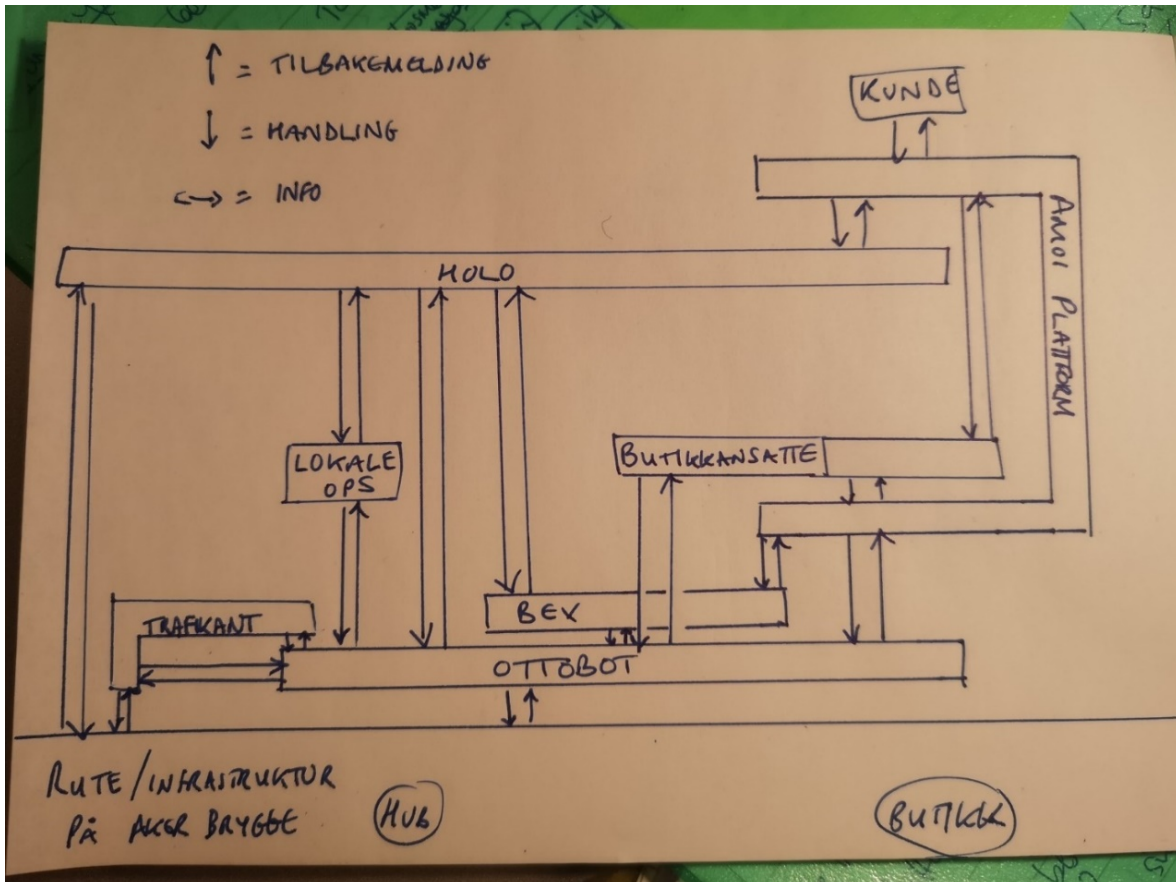 ↑ = TILBAKEMELDING
↓ = HANDLING
<-> = INFO
KUNDE
AMOI PLATTFORM
HOLO
LOKALE
OPS
BUTIKKANSATTE
BEX
TRAFIKANT
OTTOBOT
RUTE/INFRASTRUKTUR
PÅ AKER BRYGGE
HUB
BUTIKK